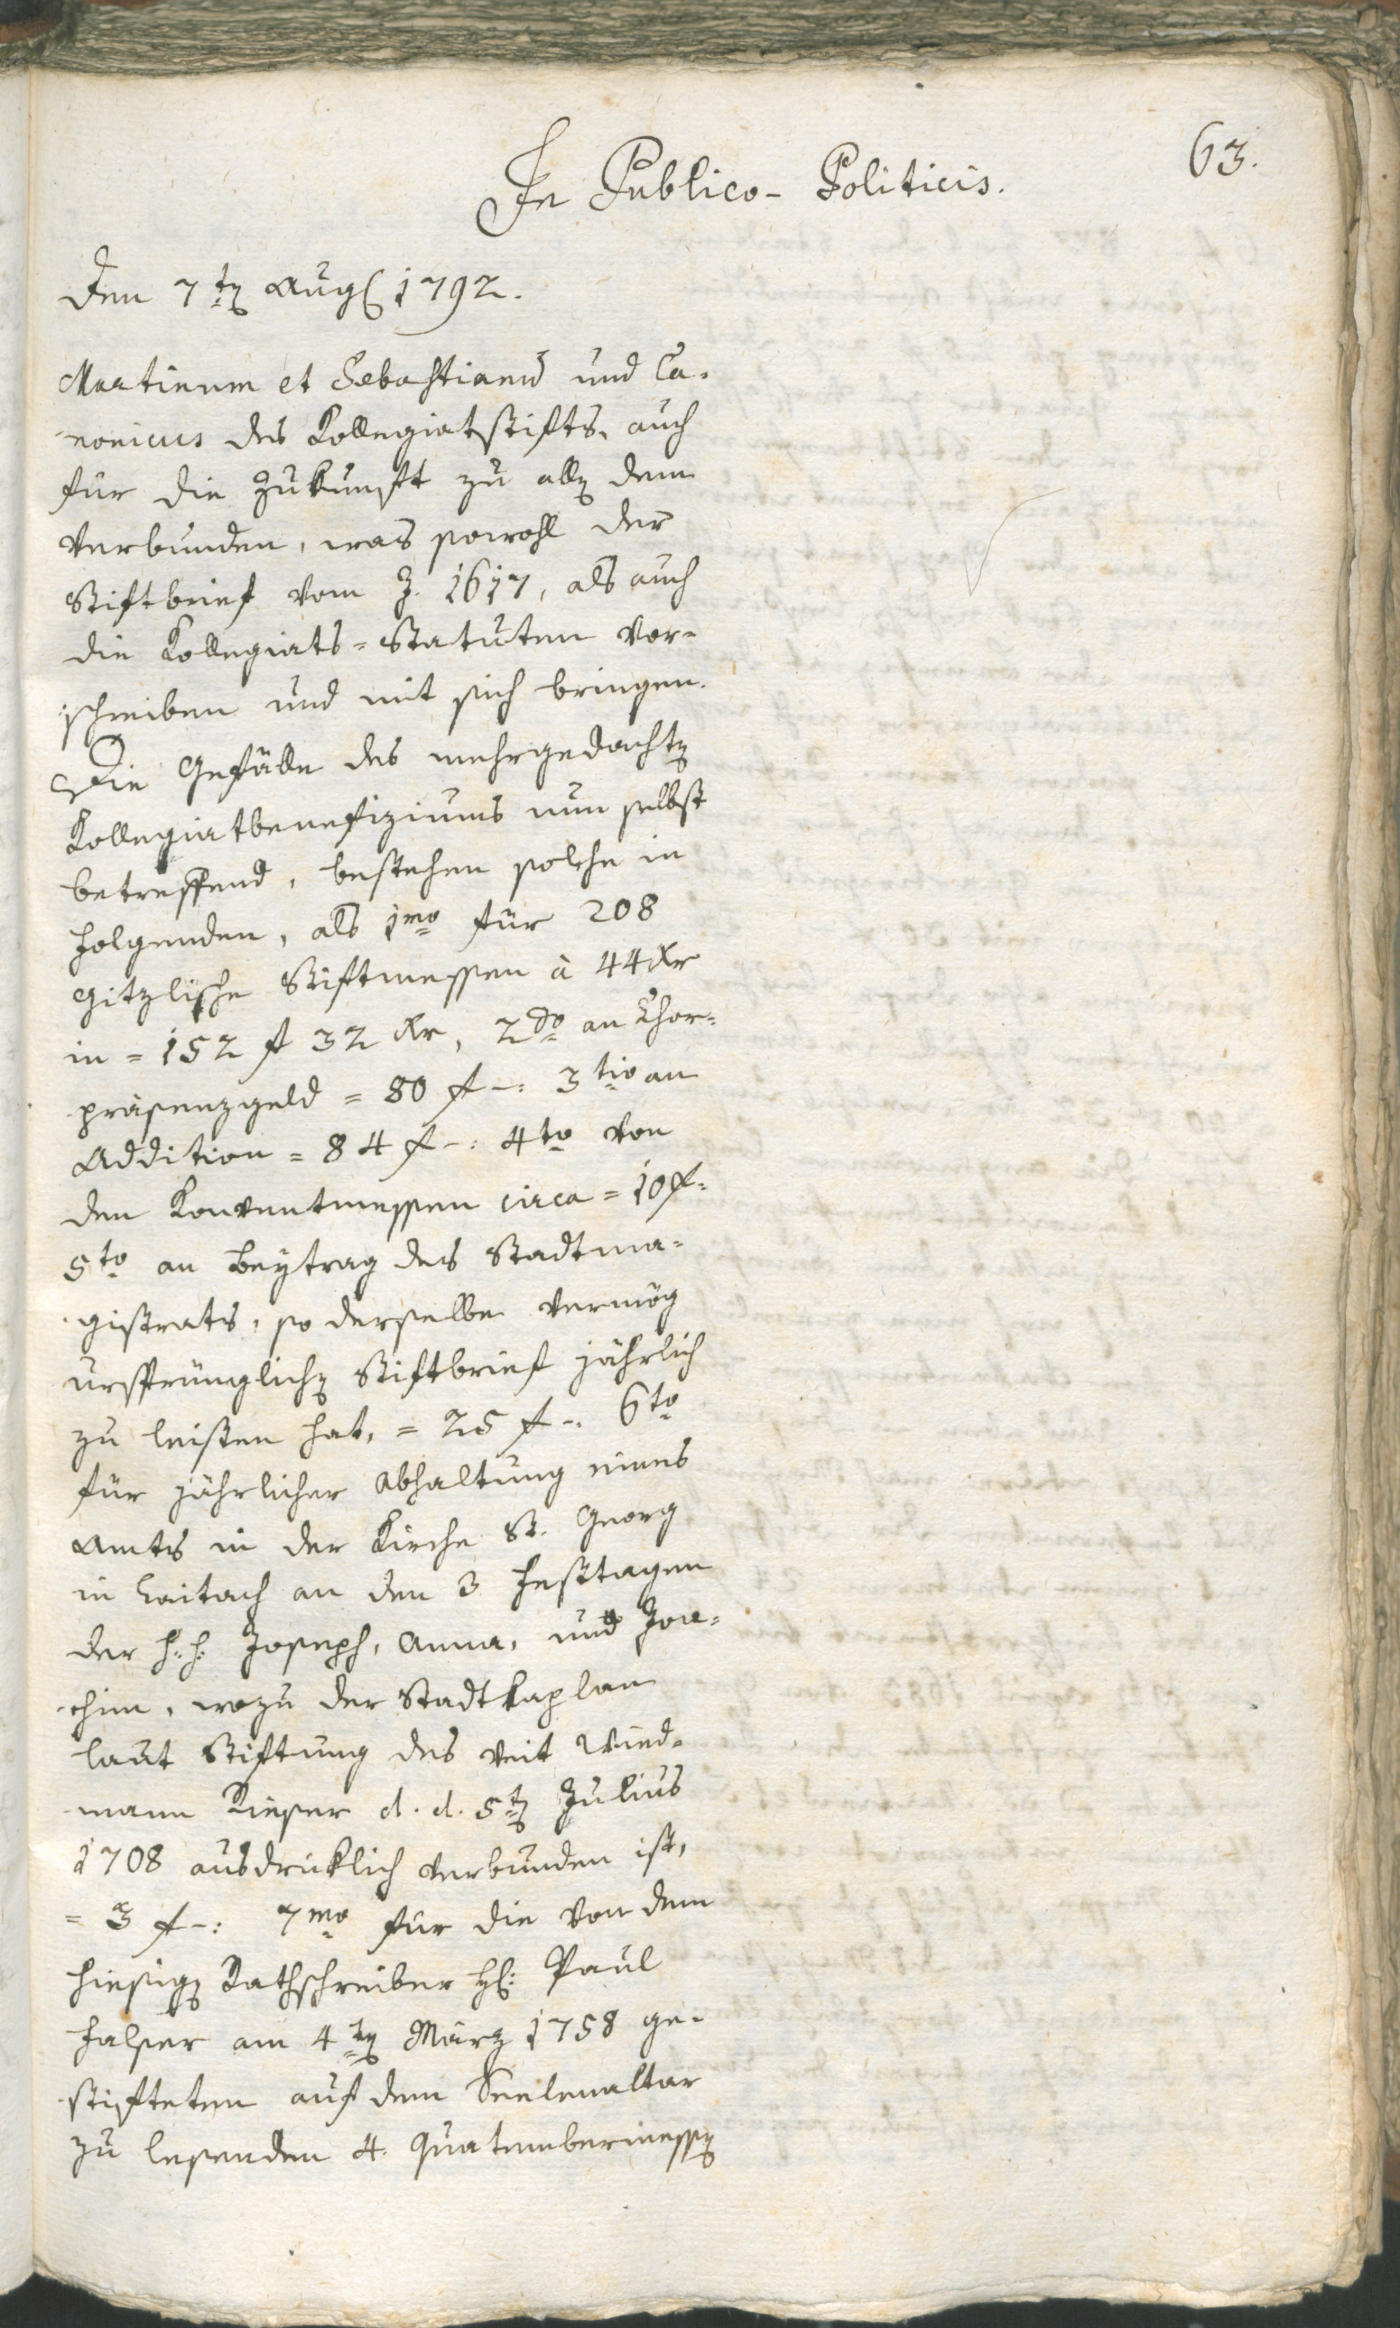 63.
In Publico- Politicis.
Den 7ten Aug. 1792.
Martinum et Sebastianū und Ca-
nonicus des Kollegiatstifts, auch
für die Zukunft zu allen dem
verbunden, was sowohl der
Stiftbrief vom J. 1617, als auch
die Kollegiats-Statuten vor-
schreiben und mit sich bringen.
Die Gefälle des mehrgedachten
Kollegiatbenefiziums nun selbst
betreffend, bestehen solche in
folgenden, als 1mo für 208
Gitzlische Stiftmessen à 44 Xr
in = 152 f 32 Xr, 2do an Chor-
präsenzgeld = 80 f -: 3tio an
Addition = 84 f -: 4to von
den Konventmessen circa = 10 f -
5to an Beytrag des Stadtma-
gistrats, so derselbe vermög
ursprünglichen Stiftbrief jährlich
zu leisten hat, = 25 f -: 6to
für jährlicher Abhaltung eines
Amts in der Kirche St. Georg
in Laitach an den 3 Festtagen
der h. h. Joseph, Anna, und Joa-
chim, wozu der Stadtkaplan
laut Stiftung des Veit Wied-
mann Rieser d. d. 5ten Julius
1708 ausdrüklich verbunden ist,
= 3 f -: 7mo für die von dem
hiesigen Rathschreiber H: Paul
Halser am 4ten März 1758 ge-
stifteten auf dem Seelenaltar
zu lesenden 4 Quatembermessen